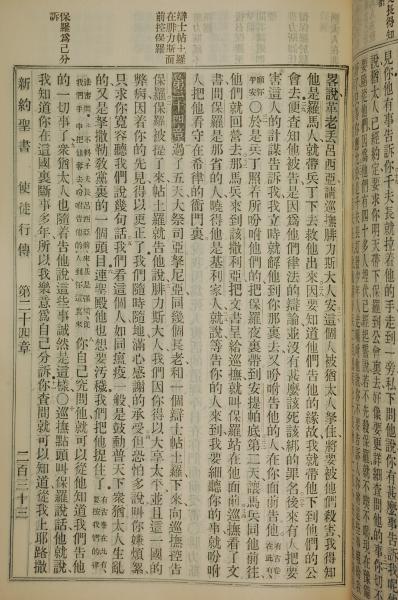 見你他有事告訴你千夫長就拉着他的手走到一旁私下問他說你有甚麼事告訴我呢
說猶太人已經約定要求你明天帶保羅到公會裏去好像要更詳細查問他的事你切不
畧說革老丟呂西亞請巡撫腓力斯大人安這個人被猶太人拏住將要被他們殺害我得知
他是羅馬人就帶兵丁下去救他出來因要知道他們告他的緣故我就帶他下到他們的公
會去便查知他被告是因爲他們律法的辯論並沒有甚麼該死該綁的罪名後來有人把要
害這人的計謀告訴我我立時就解他到你那裏去又吩咐告他的人在你面前告他有古卷在此有
願你平安○於是兵丁照着所吩咐他們的把保羅夜裏帶到安提帕底第二天讓馬兵同他前往
他們就回營去那馬兵來到該撒利亞把文書呈給巡撫就叫保羅站在他面前巡撫看了文
書問保羅是那省的人曉得他是基利家人就說等告你的人來到我要細聽你的事就吩咐
人把他看守在希律的衙門裏
辯士帖土羅在腓力斯面前控保羅
第二十四章 過了五天大祭司亞拏尼亞同幾個長老和一個辯士帖土羅下來向巡撫控告
保羅保羅被提了來帖土羅就告他說腓力斯大人我們因你得以大享太平並且這一國的
弊病因着你的先見得以更正了我們隨時隨地滿心感謝的承受但恐怕多說叫你嫌煩絮
只求你寬容聽我們說幾句話我們看這個人如同瘟疫一般是鼓動普天下衆猶太人生亂
的又是拏撒勒教黨裏的一個頭目連聖殿他也想要污穢我們把他捉住了有古卷在此有要按我們的律
法審問不料千夫長呂西亞前來甚是強橫從我們手中把他奪去吩咐告他的人到你這裏來你自己究問他就可以從他知道我們告他
的一切事了衆猶太人也隨着告他說這些事誠然是這樣○巡撫點頭叫保羅說話他就說
保羅爲己分訴
我知道你在這國裏斷事多年所以我樂意爲自己分訴你查問就可以知道從我上耶路撒
新約聖書 使徒行傳 第二十四章 二百三十三